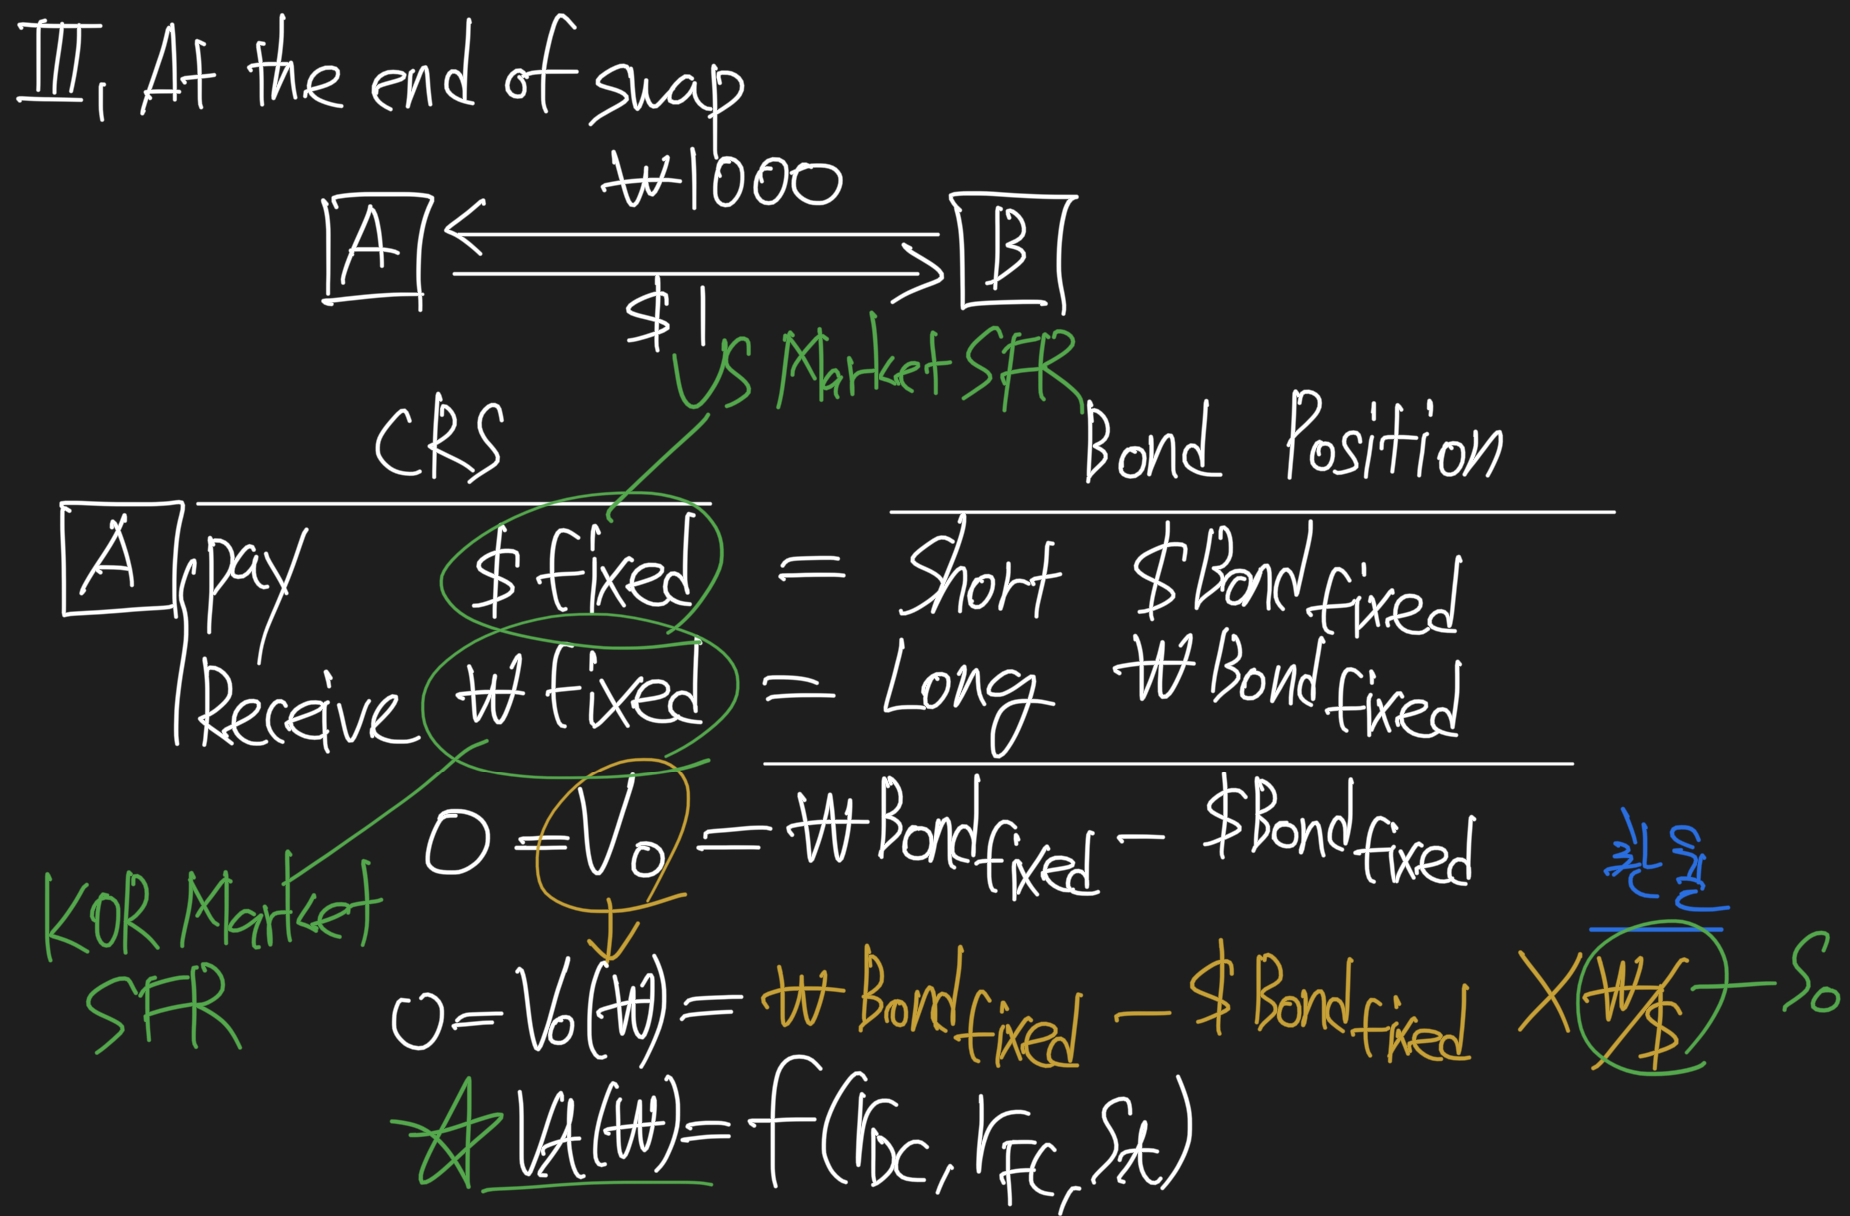 III, At the end of swap
₩1000
A B
$1
US Market SFR
CRS Bond Position
A pay $ fixed = Short $Bond fixed
Receive ₩ fixed = Long ₩Bond fixed
0 = V₀ = ₩Bond fixed - $Bond fixed
환율
KOR Market
SFR
0 = V₀(₩) = ₩Bond fixed - $Bond fixed X ₩/$ S₀
☆ Vt(₩) = f(rDC, rFC, St)